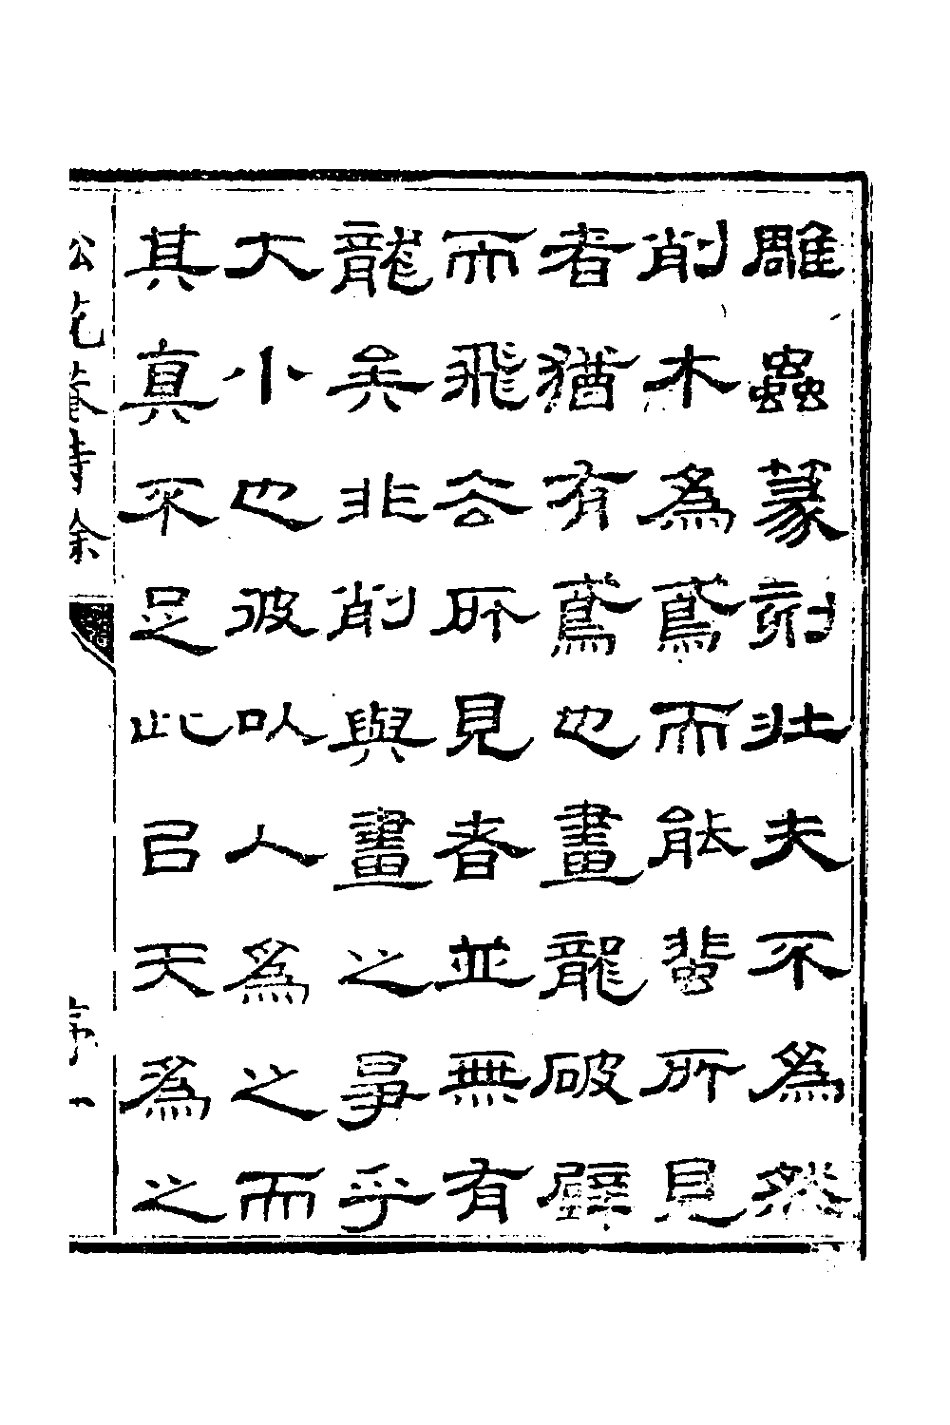 雕蟲篆刻壯夫不爲然
削木爲鳶而能蜚所見
者猶有鳶也畫龍破壁
而飛去所見者並無有
龍矣非削與畫之事乎
大小也彼以人爲之而
其真不足此㠯天爲之
松花菴詩餘
序
一